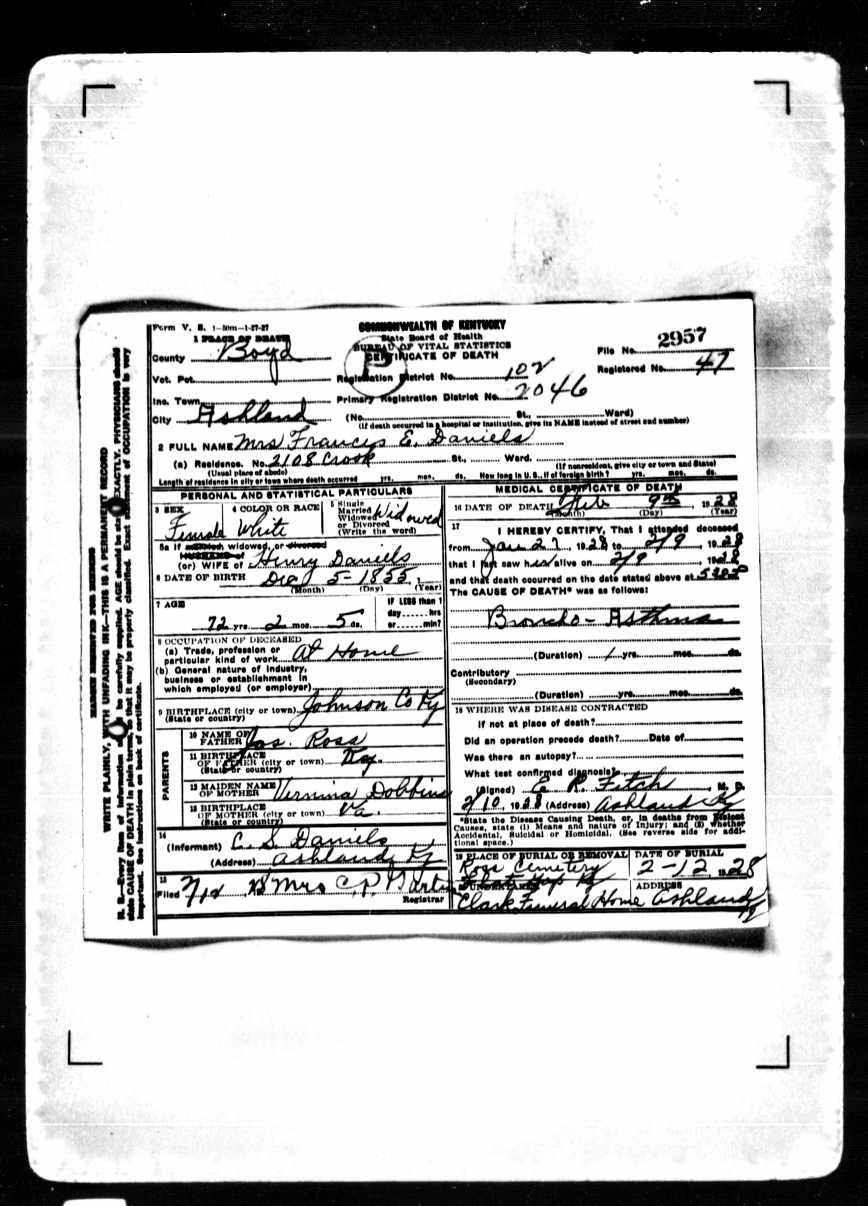 Form V. S. 1-50m-1-27-27
COMMONWEALTH OF KENTUCKY
State Board of Health
BUREAU OF VITAL STATISTICS
CERTIFICATE OF DEATH
P
File No. 2957
Registered No. 47
1 PLACE OF DEATH
County Boyd
Vot. Pct.
Registration District No. 102
Inc. Town
Primary Registration District No. 2046
City Ashland (No. St., Ward)
(If death occurred in a hospital or institution, give its NAME instead of street and number)
2 FULL NAME Mrs Frances E. Daniels
(a) Residence. No. 2108 Crook St., Ward.
(Usual place of abode) (If nonresident, give city or town and State)
Length of residence in city or town where death occurred yrs. mos. ds. How long in U. S., if of foreign birth? yrs. mos. ds.
PERSONAL AND STATISTICAL PARTICULARS
3 SEX Female
4 COLOR OR RACE White
5 Single Married Widowed or Divorced (Write the word) Widowed
5a If married, widowed, or divorced
HUSBAND of
(or) WIFE of Henry Daniels
6 DATE OF BIRTH Dec 5 - 1855
(Month) (Day) (Year)
7 AGE 72 yrs. 2 mos. 5 ds.
IF LESS than 1 day hrs or min?
8 OCCUPATION OF DECEASED
(a) Trade, profession or particular kind of work At Home
(b) General nature of industry, business or establishment in which employed (or employer)
9 BIRTHPLACE (city or town) Johnson Co Ky
(State or country)
PARENTS
10 NAME OF FATHER Jas. Ross
11 BIRTHPLACE OF FATHER (city or town) Ky.
(State or country)
12 MAIDEN NAME OF MOTHER Vernina Dobbins
13 BIRTHPLACE OF MOTHER (city or town) Va.
(State or country)
14
(Informant) C. S. Daniels
(Address) Ashland, Ky
15
Filed 2/12 28 Mrs C. P.
Registrar
MEDICAL CERTIFICATE OF DEATH
16 DATE OF DEATH Feb 9th, 1928
(Month) (Day) (Year)
17 I HEREBY CERTIFY, That I attended deceased
from Jan 27, 1928 to 2/9, 1928
that I last saw her alive on 2/9, 1928
and that death occurred on the date stated above at
The CAUSE OF DEATH* was as follows:
Broncho-Asthma
(Duration) 1 yrs. mos. ds.
Contributory
(Secondary)
(Duration) yrs. mos. ds.
18 WHERE WAS DISEASE CONTRACTED
If not at place of death?
Did an operation precede death? Date of
Was there an autopsy?
What test confirmed diagnosis?
(Signed) E. R. Fitch M. D.
2/10, 1928 (Address) Ashland Ky
*State the Disease Causing Death, or, in deaths from Violent
Causes, state (1) Means and nature of Injury; and (2) whether
Accidental, Suicidal or Homicidal. (See reverse side for addi-
tional space.)
19 PLACE OF BURIAL OR REMOVAL
Ross Cemetery
DATE OF BURIAL
2-12 1928
20 UNDERTAKER
Clark Funeral Home
ADDRESS
Ashland Ky
MARGIN RESERVED FOR BINDING
WRITE PLAINLY, WITH UNFADING INK—THIS IS A PERMANENT RECORD
N. B.—Every item of information should be carefully supplied. AGE should be stated EXACTLY. PHYSICIANS should
state CAUSE OF DEATH in plain terms, so that it may be properly classified. Exact statement of OCCUPATION is very
important. See instructions on back of certificate.